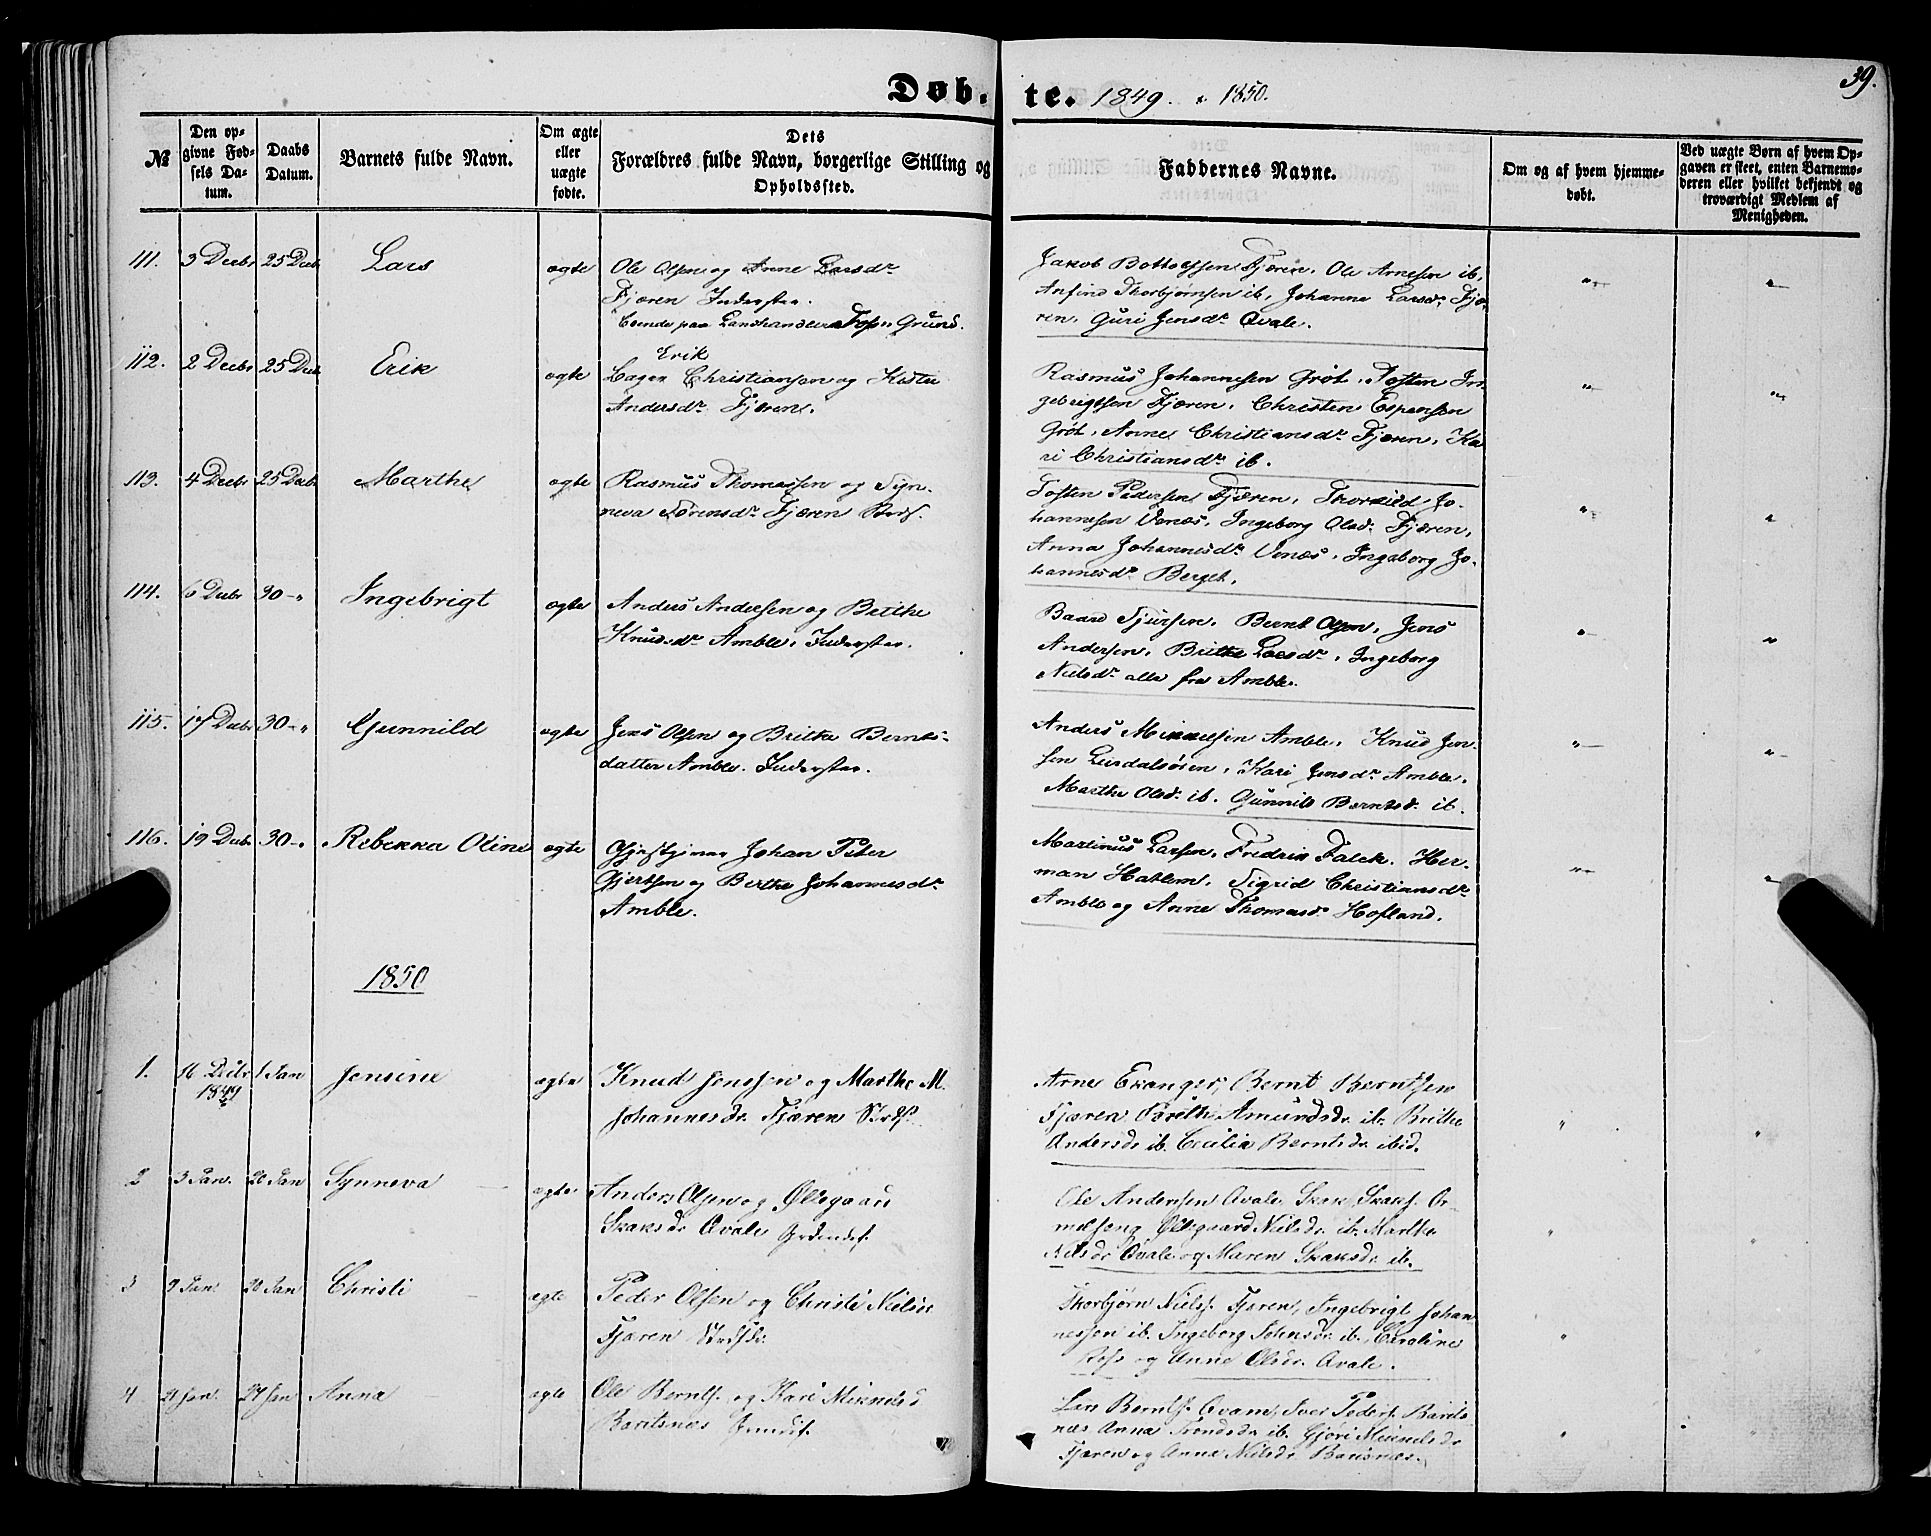 Døb- te. 1849. & 1850.
39.
№
Den op-
givne Fød-
sels Da-
tum.
Daabs
Datum.
Barnets fulde Navn.
Om ægte
eller
uægte
fødte.
Dets
Forældres fulde Navn, borgerlige Stilling og
Opholdssted.
Faddernes Navne.
Om og af hvem hjemme-
døbt.
Ved uægte Børn af hvem Op-
gaven er skeet, enten Barnemo-
deren eller hvilket bekjendt og
troværdigt Medlem af
Menigheden.
111. 3 Decbr 25 Decbr Lars ægte
Ole Olsen og Anne Larsdr
Fjæren Inderster.
Boende paa Landhandler Grund.
Jakob Fjæren. Ole Arnesen ib.
Anfind Thorbjørnsen ib, Johanne Larsdr Fjæ-
ren. Guri Jensdr Qvale.
112. 2 Decbr 25 Decbr Erik ægte
Erik
Christiansen og
Andersdr Fjæren.
Rasmus Johannesen Grøt. Tosten In-
gebrigtsen Fjæren. Christen Espensen
Grøt. Anne Christiansdr Fjæren. Ka-
ri Christiansdr ib.
113. 4 Decbr 25 Decbr Marthe ægte
Rasmus Thomassen og Syn-
neva Sørensdr Fjæren Strds.
Tosten Pedersen Fjæren. Thorkild Jo-
hannesen Venæs. Ingeborg Olsdr Fjæren.
Anna Johannesdr Venæs. Ingeborg Jo-
hannesdr Berget.
114. 6 Decbr 30 - " Ingebrigt ægte
Anders Andersen og Brithe
Knudsdr Amble. Inderster.
Baard Sjursen. Bernt Olsen. Jens
Andersen. Brithe Larsdr. Ingeborg
Nielsdr alle fra Amble.
115. 17 Decbr 30 - " Gunnild ægte
Jens Olsen og Brithe Bernts-
datter Amble. Inderster.
Anders Mikkelsen Amble. Knud Jen-
sen Leirdalsøren. Kari Jensdr Amble.
Marthe Olsdr ib. Gunnild Berntsdr ib.
116. 19 Decbr 30 - " Rebekka Oline ægte
Johan Peter
Gjertsen og Berthe Johannesdr
Amble.
Martinus Larsen. Fredrik Falck. Her-
man Hatlem. Sigrid Christiansdr
Amble og Anne Thomasdr Hofland.
1850
1. 16 Decbr 1 Jan Jensine ægte
1849
Knud Jenssen og Marthe M.
Johannesdr. Fjæren Strds.
Arne Eikanger, Bernt Berntsen
Fjæren Amundsdr. ib. Brithe
Andersdr ib. Cecilia Berntsdr. ibid.
2 3 Jan. 20 Jan Synneva ægte
Anders Olsen og Øllegaard
Skaksdr Qvale
Ole Andersen Qvale. Skak Skaks. Or-
melsæng Øllegaard Nielsdr. ib. Marthe
Nilsdr Qvale og Maren Skaksdr. ib.
3 9 Jan. 20 Jan Christi ægte
Peder Olsen og Christi Nielsdr
Fjæren
Thorbjørn Niels. Fjæren, Ingebrigt Johan
nessen ib. Ingeborg Johnsdr. ib. Caroline
og Anne Olsdr. Qvale.
4 21 Jan. 27 Jan Anna ægte
Ole Bernts. og Kari Mikkelsd
Baritsnæs
Lars Bernts. Qvam, Iver Peders. Barits-
næs Anna Trondsdr ib. Gjøri Mikkelsdr
Fjæren og Anna Nielsdr. Barisnæs.